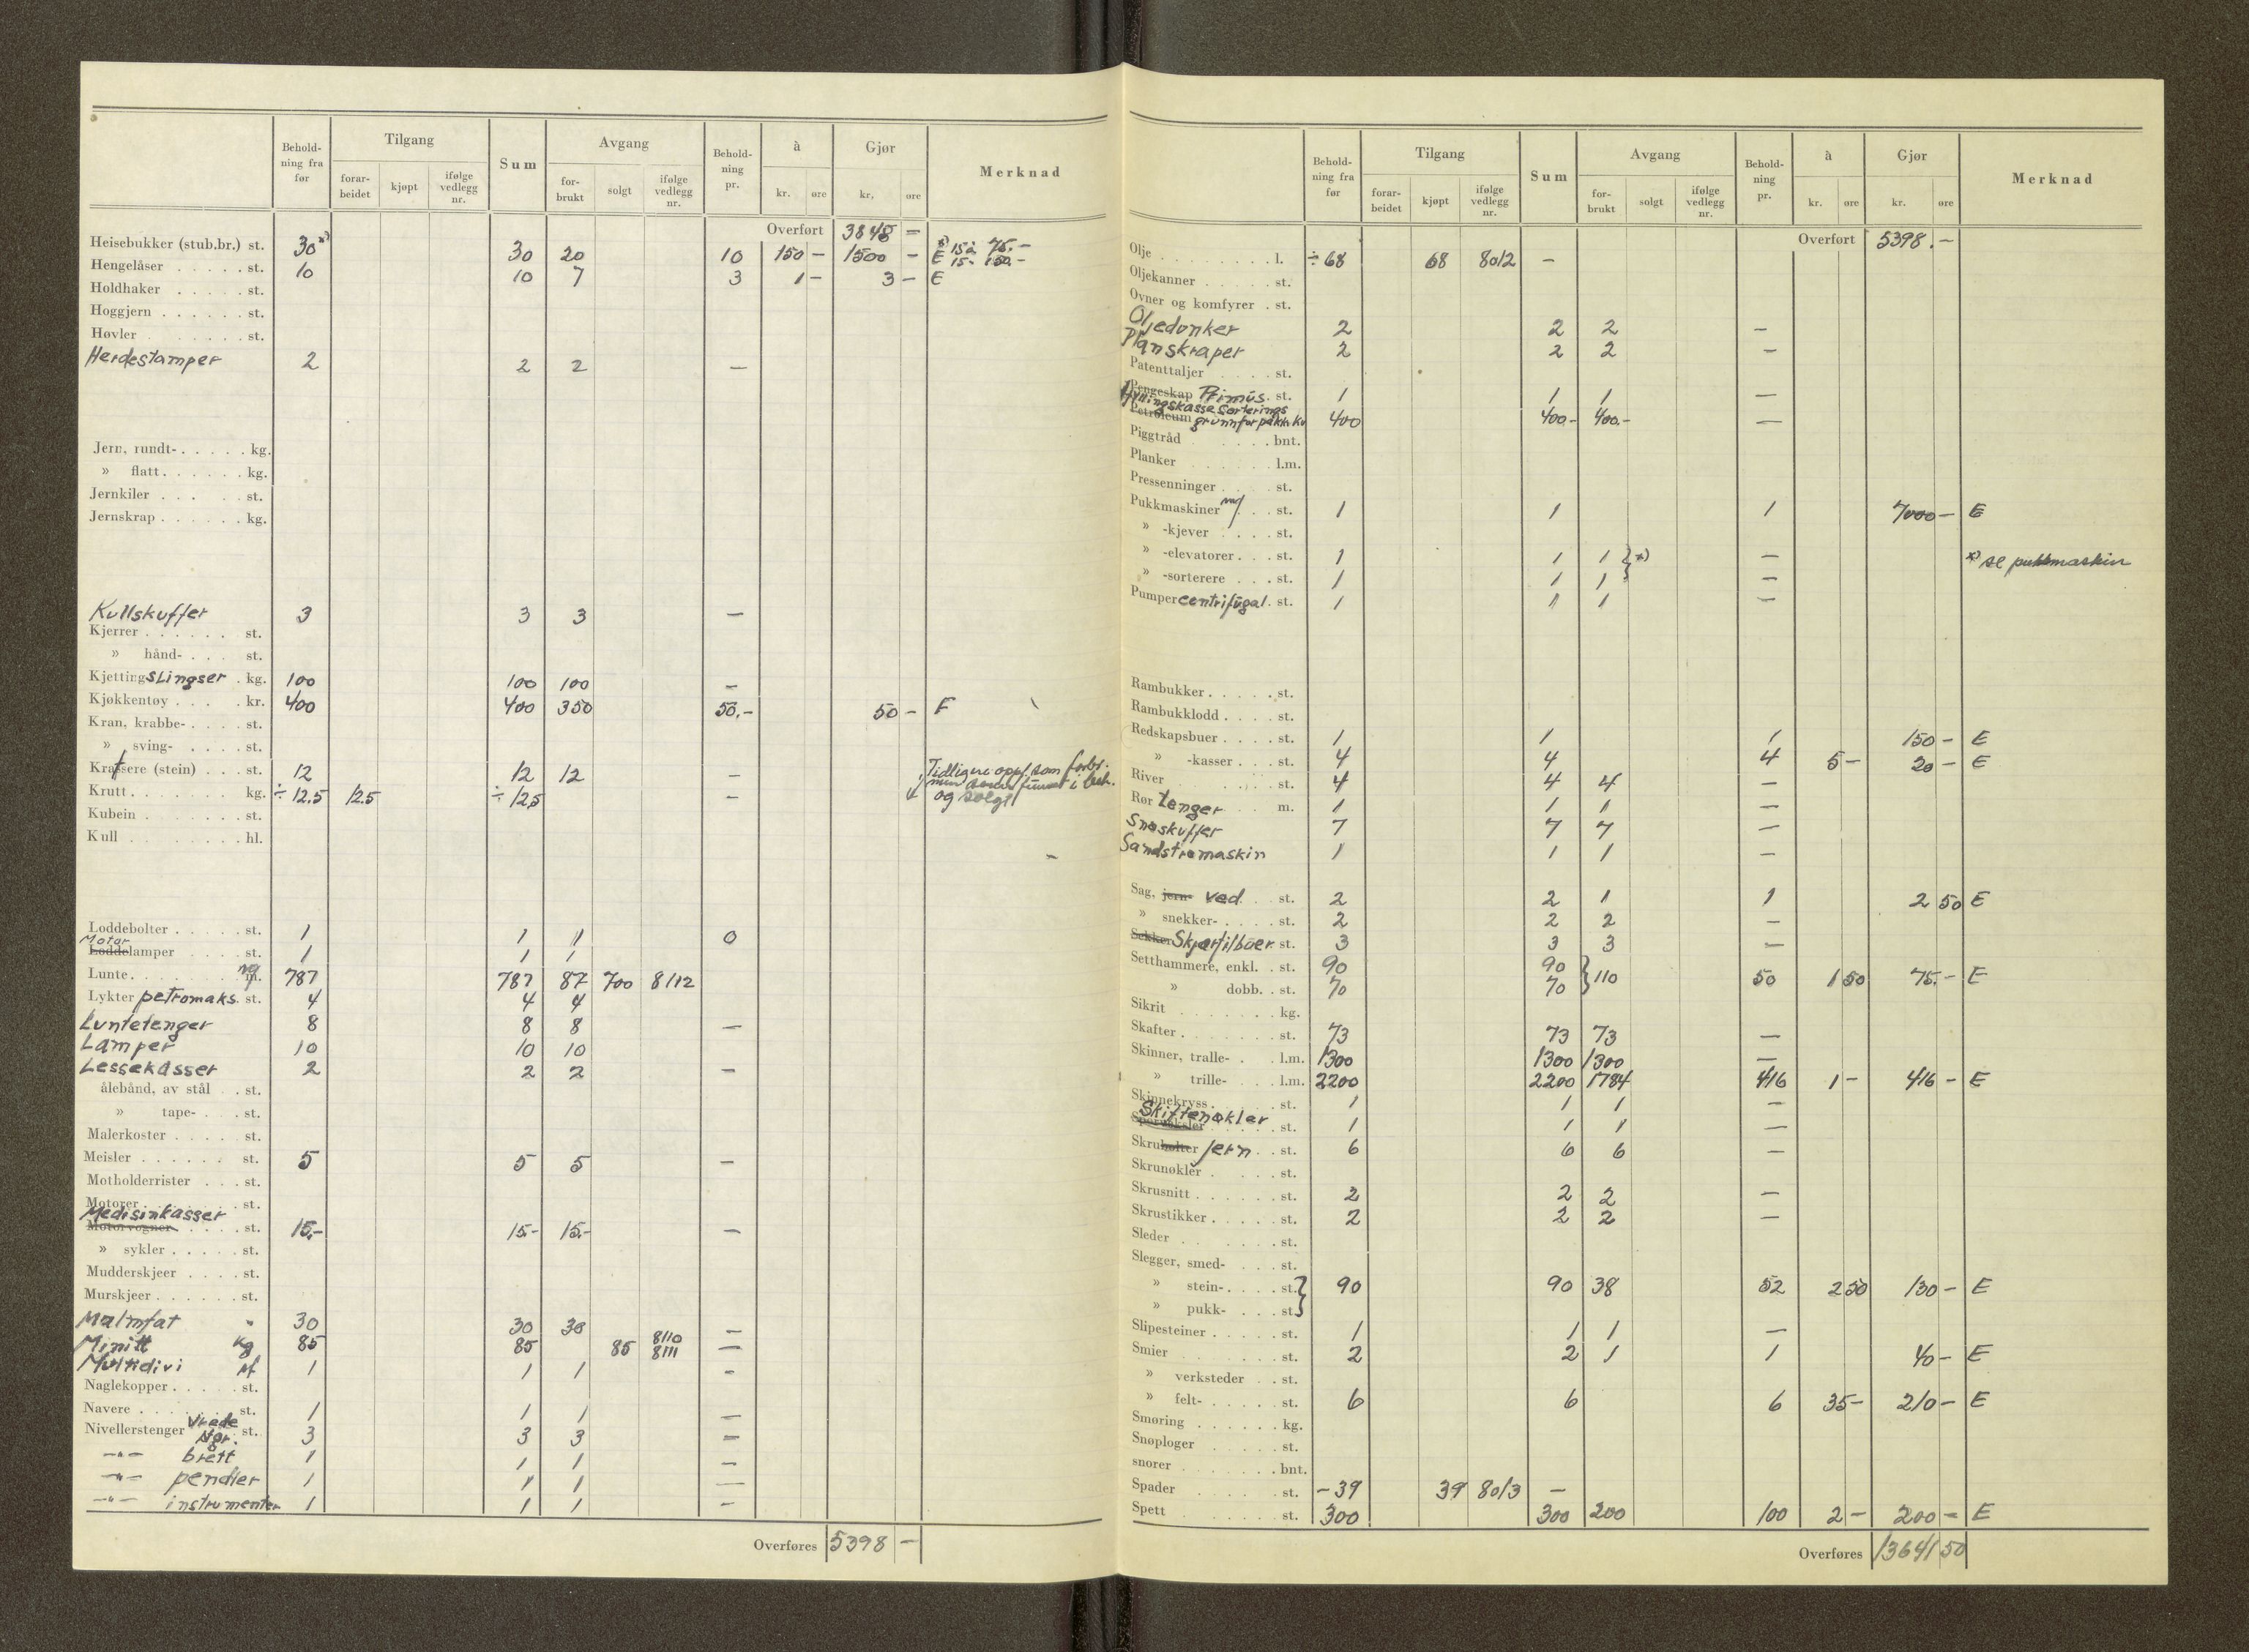 Behold-ning fra før | Tilgang: forar-beidet, kjøpt, ifølge vedlegg nr. | Sum | Avgang: for-brukt, solgt, ifølge vedlegg nr. | Behold-ning pr. | à kr. øre | Gjør kr, øre | Merknad
Overført 3848 —
Heisebukker (stub.br.) st. 30 *) 30 20 10 150 — 1500 — E *) 15 à 75.- 15- 150.-
Hengelåser . . . . . st. 10 10 7 3 1 — 3 — E
Holdhaker . . . . . st.
Hoggjern . . . . . . st.
Høvler . . . . . . . st.
Herdestamper 2 2 2 —
Jern, rundt- . . . . . kg.
» flatt . . . . . . kg.
Jernkiler . . . . . st.
Jernskrap . . . . . . kg.
Kullskuffer 3 3 3 —
Kjerrer . . . . . . st.
» hånd- . . . st.
Kjettingslingser . kg. 100 100 100 —
Kjøkkentøy . . . . kr. 400 400 350 50.- 50 — E
Kran, krabbe- . . . . st.
» sving- . . . . st.
Kratsere (stein) . . . st. 12 12 12 — Tidligere oppf. som forbr.
Krutt . . . . . . . kg. ÷ 12.5 12.5 ÷ 12,5 — og solgt
Kubein . . . . . . . st.
Kull . . . . . . . . hl.
Loddebolter . . . . . st. 1 1 1 0
Motor
Loddelamper . . . . st. 1 1 1
Lunte . . . . . . . m. 787 787 87 700 8112
Lykter petromaks. st. 4 4 4
Luntetenger 8 8 8 —
Lamper 10 10 10
Lessekasser 2 2 2 —
ålebånd, av stål . . st.
» tape- . . . st.
Malerkoster . . . . . st.
Meisler . . . . . . st. 5 5 5 —
Motholderrister . . . st.
Motorer . . . . . . st.
Medisinkasser
Motorvogner . . . . st. 15.- 15.- 15.- —
» sykler . . . . . st.
Mudderskjeer . . . . st.
Murskjeer . . . . . . st.
Malmfat " 30 30 30 —
Minitt kg 85 85 85 8110 8111 —
Multidivi 1 1 1 -
Naglekopper . . . . . st.
Navere . . . . . . . st. 1 1 1 —
Nivellerstenger st. 3 3 3 —
—"— brett 1 1 1 —
—"— pendler 1 1 1 —
—"— instrumenter 1 1 1 —
Overføres 5398 —
Behold-ning fra før | Tilgang: forar-beidet, kjøpt, ifølge vedlegg nr. | Sum | Avgang: for-brukt, solgt, ifølge vedlegg nr. | Behold-ning pr. | à kr. øre | Gjør kr. øre | Merknad
Overført 5398.—
Olje . . . . . . . . l. ÷ 68 68 8012 —
Oljekanner . . . . . st.
Ovner og komfyrer . st.
Oljedunker 2 2 2 —
Planskraper 2 2 2 —
Patenttaljer . . . . st.
Pengeskap Primus. st. 1 1 1 —
Petroleum 400 400.- 400.- —
Piggtråd . . . . . bnt.
Planker . . . . . . l.m.
Pressenninger . . . . st.
Pukkmaskiner . . . st. 1 1 1 7000 — E
» -kjever . . . . st.
» -elevatorer . . . st. 1 1 1 } *) — *) se pukkmaskin
» -sorterere . . . st. 1 1 1 —
Pumper centrifugal. st. 1 1 1 —
Rambukker . . . . . st.
Rambukklodd . . . . st.
Redskapsbuer . . . . st. 1 1 1 150 — E
» -kasser . . . st. 4 4 4 5 — 20 — E
River . . . . st. 4 4 4 —
Rør tenger . . m. 1 1 1 —
Snøskuffer 7 7 7 —
Sandstrømaskin 1 1 1 —
Sag, jern- ved . . st. 2 2 1 1 2 50 E
» snekker- . . . . st. 2 2 2 —
Sekker st. 3 3 3 —
Setthammere, enkl. . st. 90 90 } 110 50 1 50 75.— E
» dobb. . st. 70 70
Sikrit . . . . . . . kg.
Skafter . . . . . . . st. 73 73 73 —
Skinner, tralle- . . . l.m. 1300 1300 1300 —
» trille- . . . l.m. 2200 2200 1784 416 1 — 416 — E
Skinnekryss . . . . . st. 1 1 1 —
Skiftenøkler . . . . st. 1 1 1 —
Skrubolter jern . . st. 6 6 6 —
Skrunøkler . . . . . st.
Skrusnitt . . . . . . st. 2 2 2 —
Skrustikker . . . . . st. 2 2 2 —
Sleder . . . . . . . st.
Slegger, smed- . . . st.
» stein- . . . . st. } 90 90 38 52 2 50 130 — E
» pukk- . . . . st.
Slipesteiner . . . . . st. 1 1 1 —
Smier . . . . . . . st. 2 2 1 1 40 — E
» verksteder . . st.
» felt- . . . . . st. 6 6 6 35 — 210 — E
Smøring . . . . . . kg.
Snøploger . . . . . st.
snorer . . . . . . . bnt.
Spader . . . . . . st. -39 39 8013 —
Spett . . . . . . . st. 300 300 200 100 2 — 200 — E
Overføres 13641 50